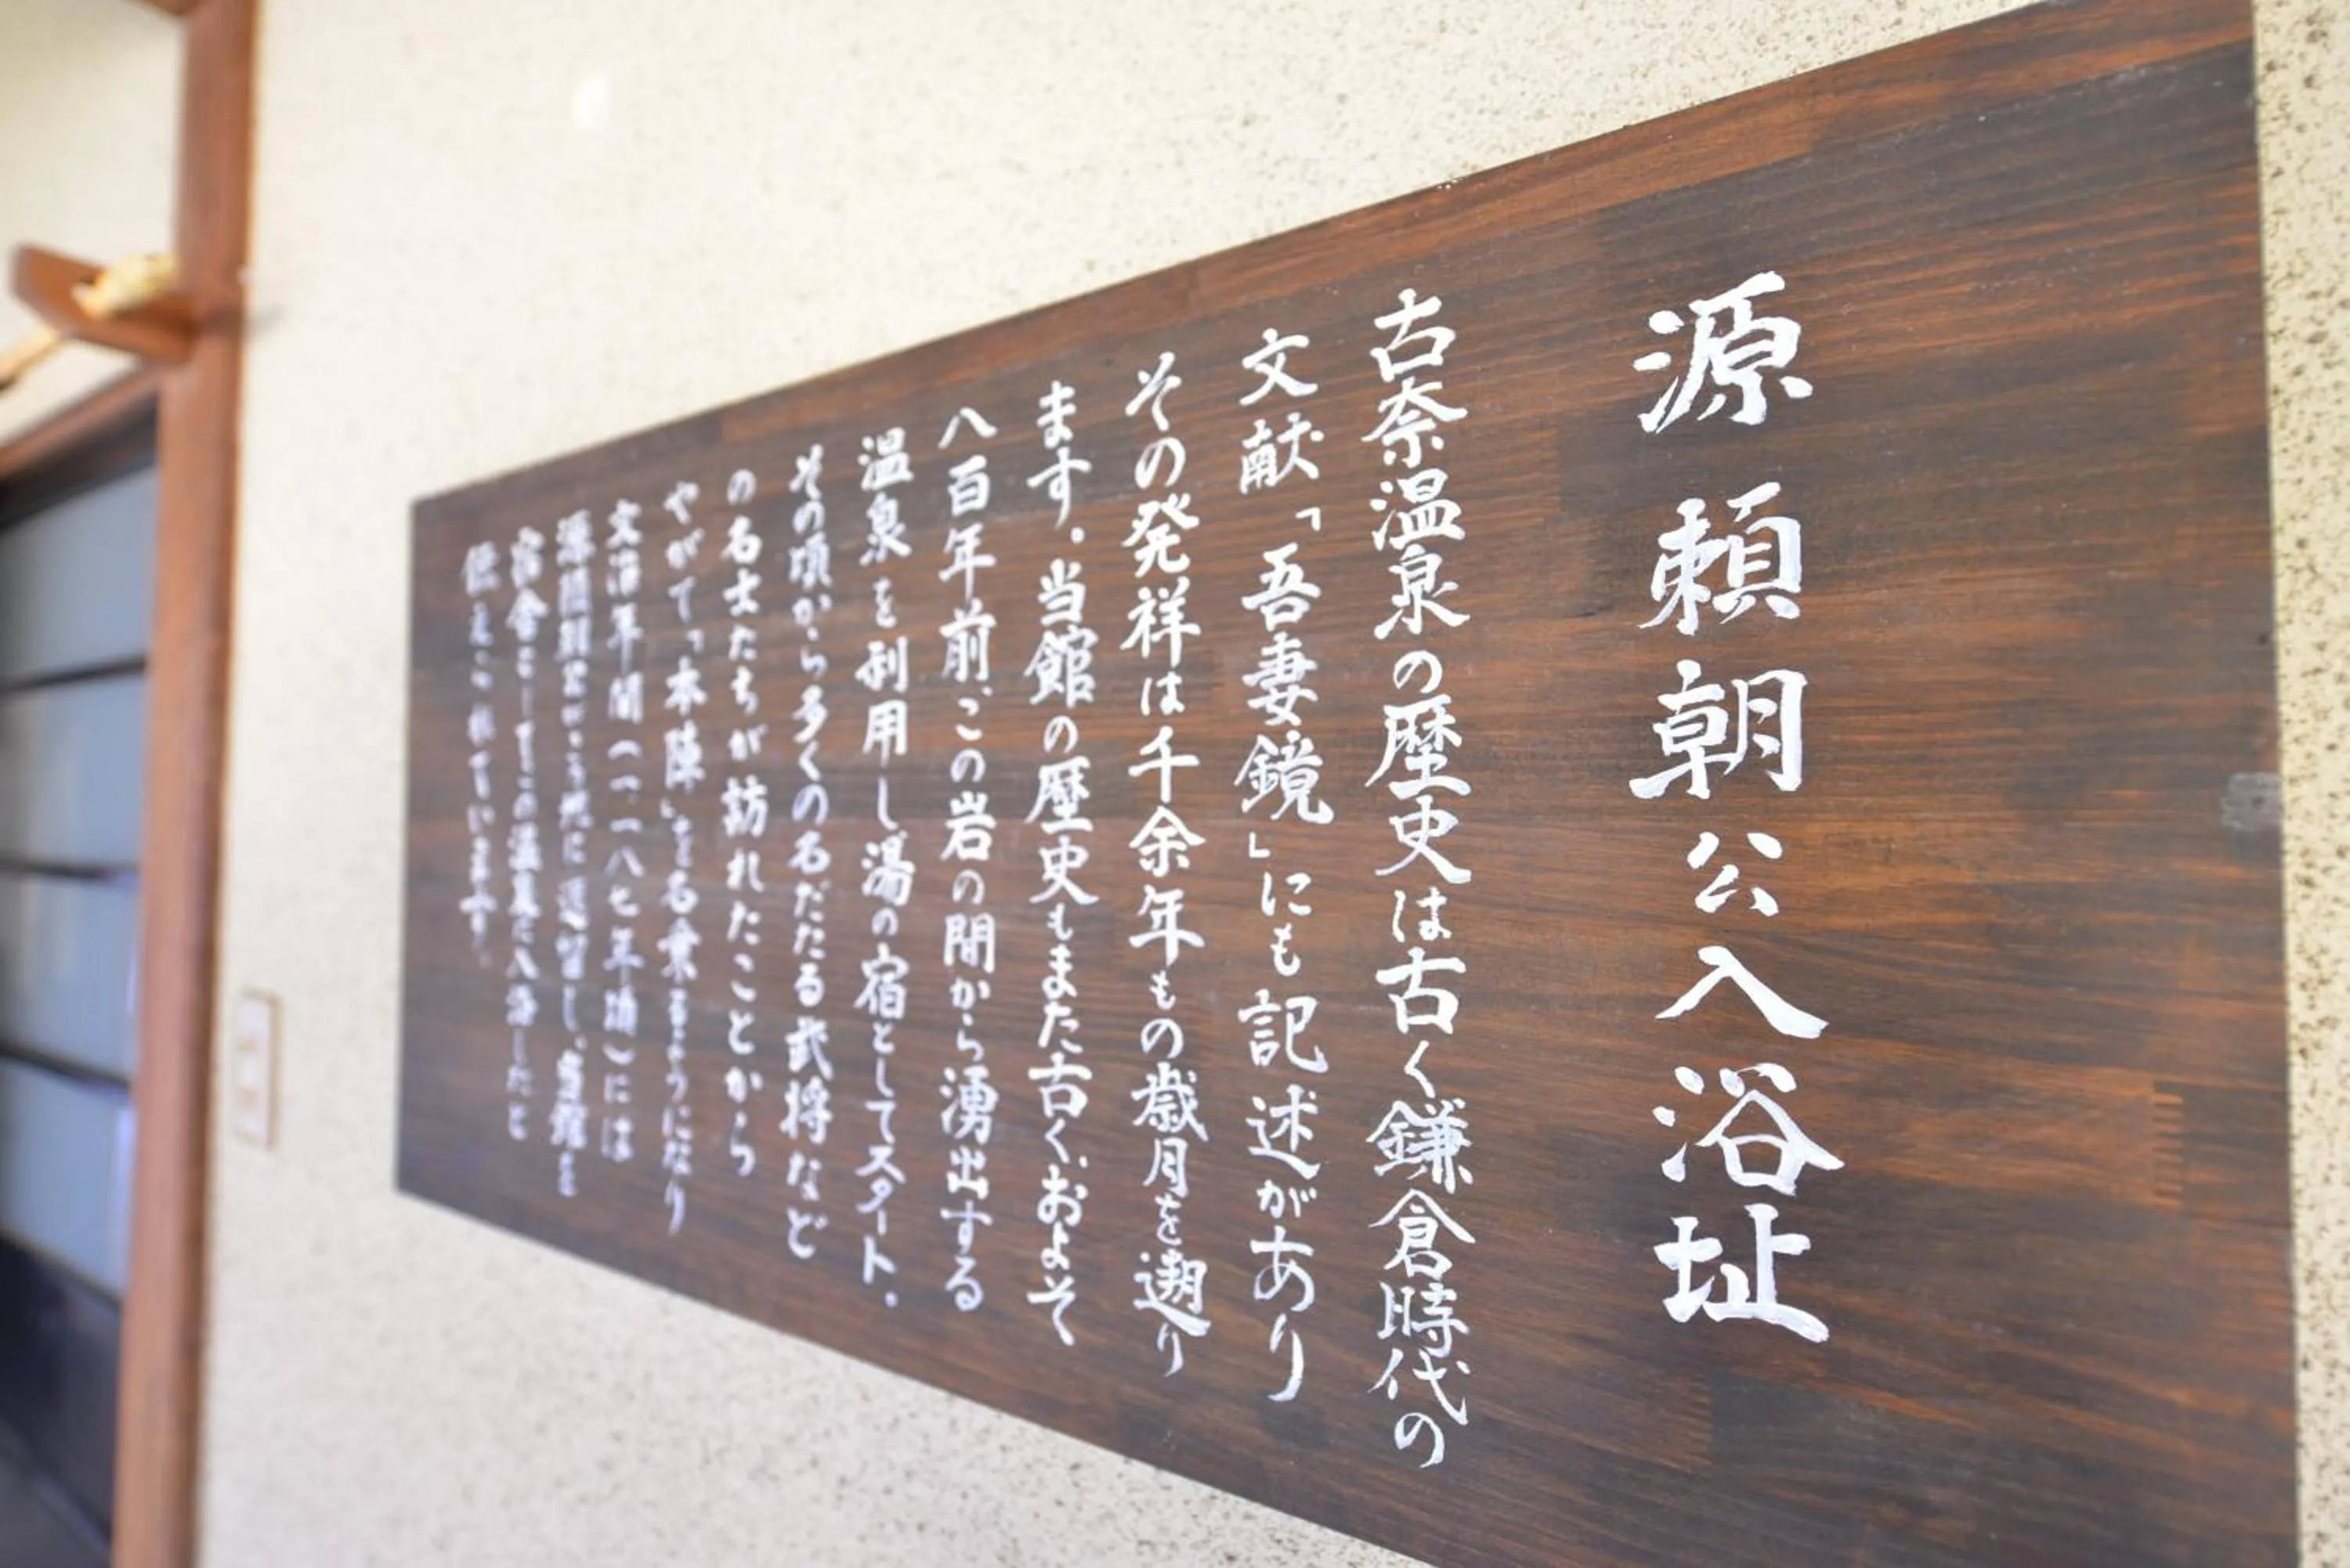 源頼朝公入浴址
古奈温泉の歴史は古く鎌倉時代の
文献「吾妻鏡」にも記述があり
その発祥は千余年もの歳月を遡り
ます。当館の歴史もまた古く、およそ
八百年前、この岩の間から湧出する
温泉を利用し湯の宿としてスタート。
その頃から多くの名だたる武将など
の名士たちが訪れたことから
やがて「本陣」を名乗るようになり
文治年間（一一八七年頃）には
源頼朝公がこの地に逗留し、当館を
宿舎としてこの温泉に入浴したと
伝えられています。